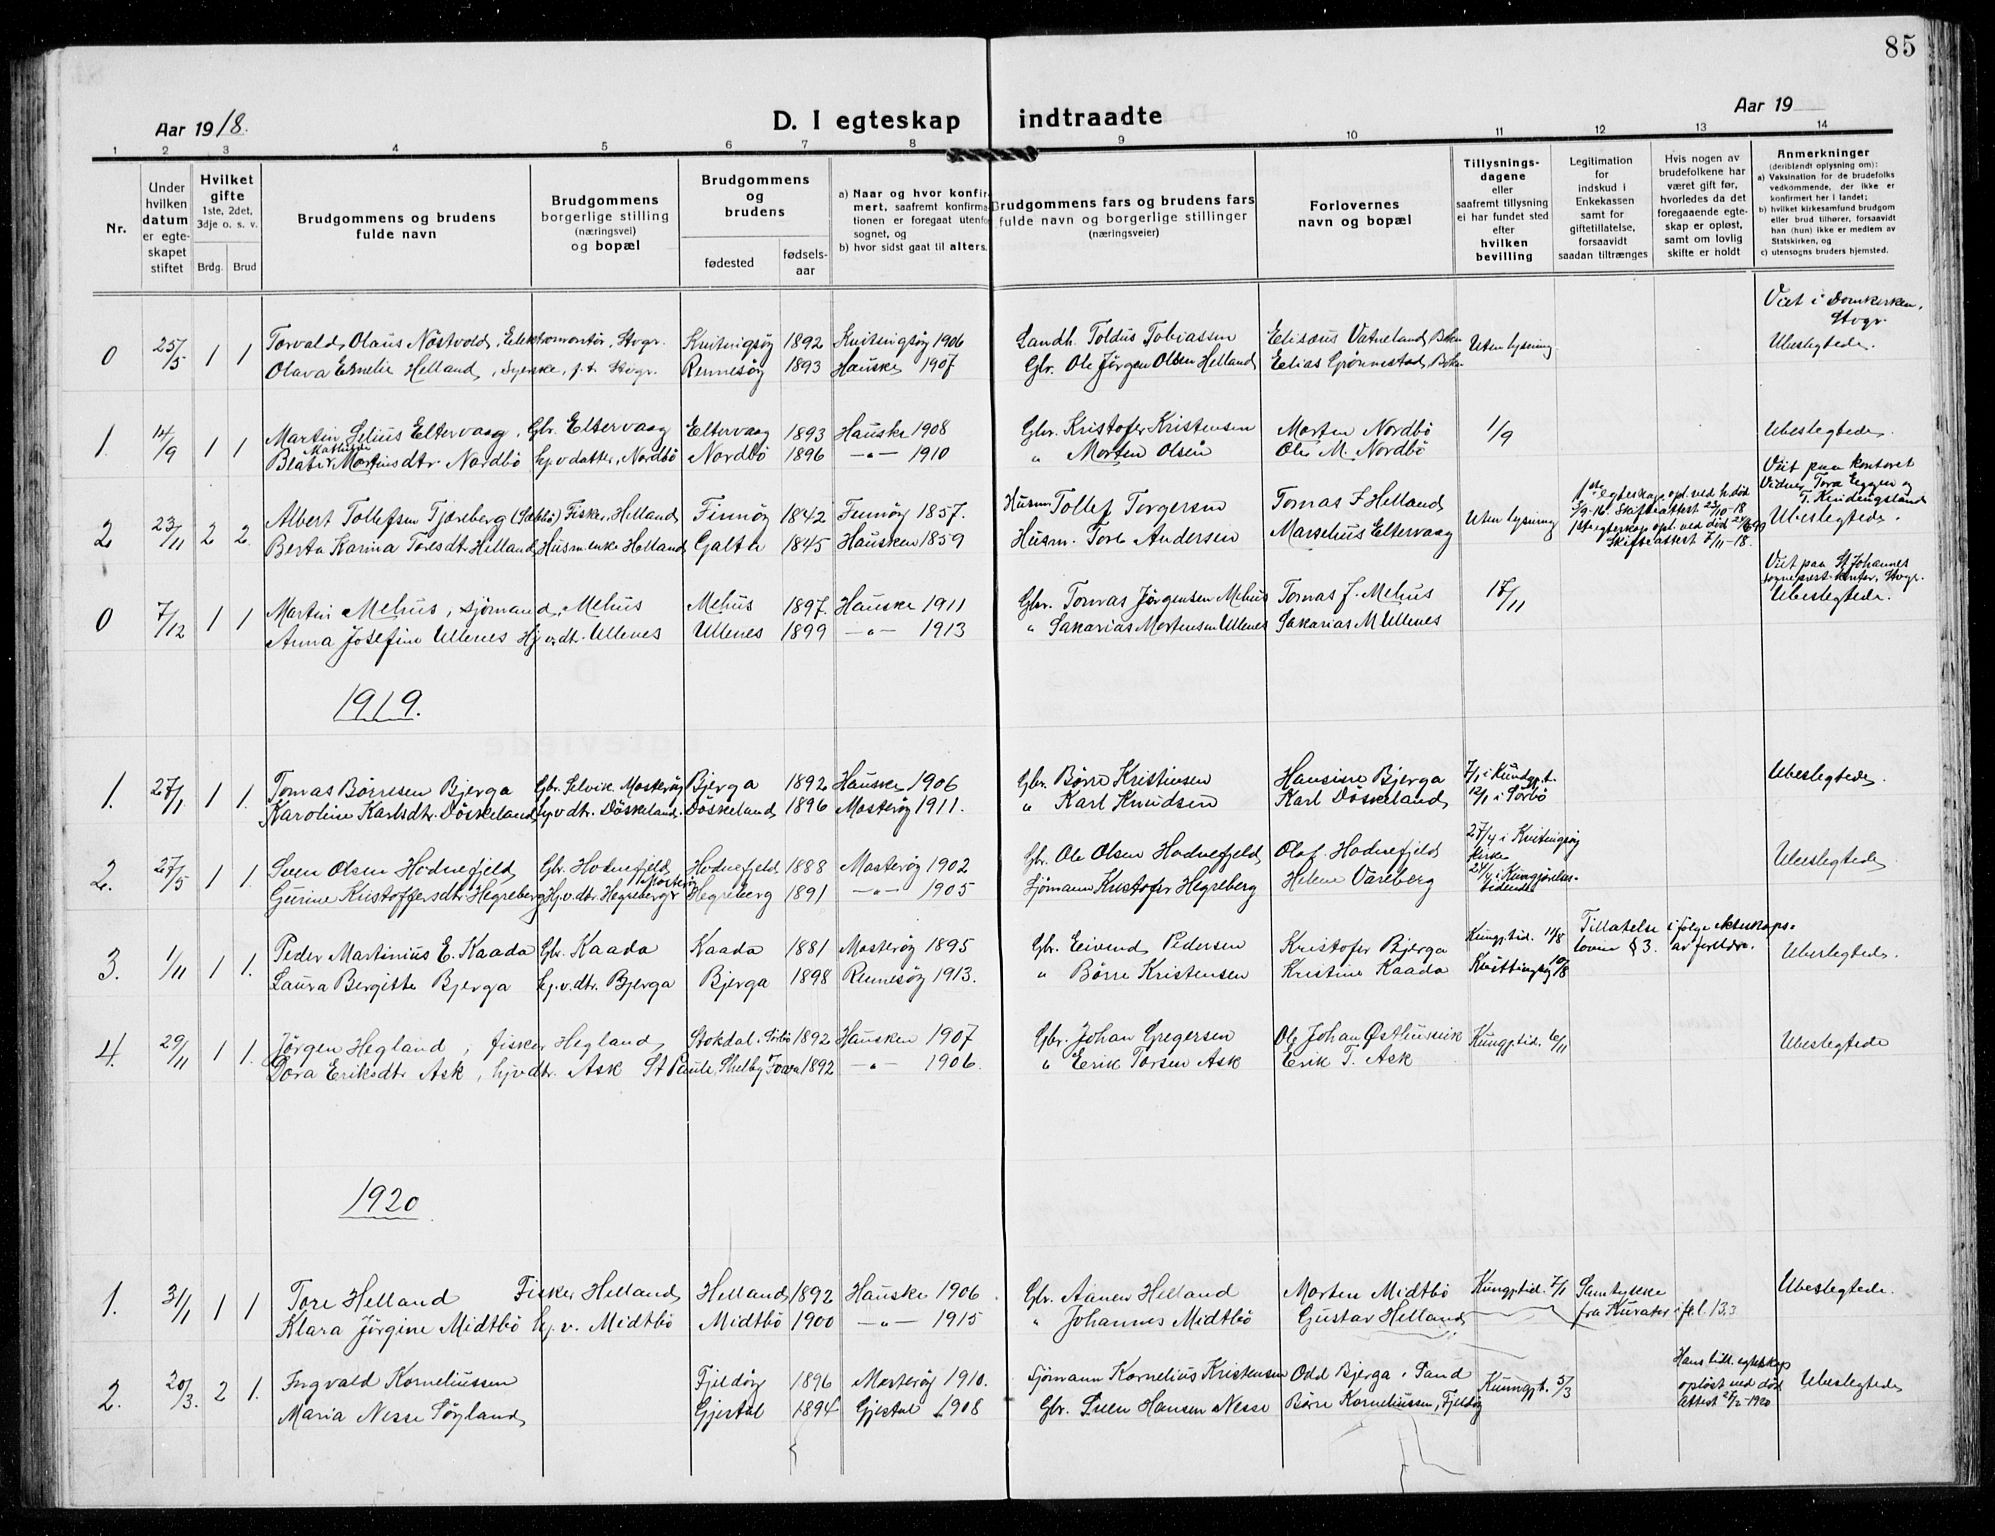 85
Aar 1918.
D. I egteskap indtraadte
Aar 19
1 2 3 4 5 6 7 8 9 10 11 12 13 14
Nr.
Under hvilken datum er egteskapet stiftet
Hvilket gifte 1ste, 2det, 3dje o. s. v.
Brdg. Brud
Brudgommens og brudens fulde navn
Brudgommens borgerlige stilling (næringsvei) og bopæl
Brudgommens og brudens
fødested
fødsels-aar
a) Naar og hvor konfirmert, saafremt konfirmationen er foregaat utenfor sognet, og
b) hvor sidst gaat til alters.
Brudgommens fars og brudens fars fulde navn og borgerlige stillinger (næringsveier)
Forlovernes navn og bopæl
Tillysnings-dagene eller saafremt tillysning ei har fundet sted efter hvilken bevilling
Legitimation for indskud i Enkekassen samt for giftetillatelse, forsaavidt saadan tiltrænges
Hvis nogen av brudefolkene har været gift før, hvorledes da det foregaaende egteskap er opløst, samt om lovlig skifte er holdt
Anmerkninger
(deriblandt oplysning om):
a) Vaksination for de brudefolks vedkommende, der ikke er konfirmert her i landet;
b) hvilket kirkesamfund brudgom eller brud tilhører, forsaavidt han (hun) ikke er medlem av Statskirken, og
c) utensogns bruders hjemsted.
Viet i Domkirken, Stvgr.
0 25/5 1 1 Torvald Olaus Nostvold, Elektromontør, Stvgr. Kvitingsöy 1892 Kvitingsöy 1906 Landh. Toldus Tobiassen Eliseus Vatneland, Bokn Uten lysning Ubeslegtede.
Olava Emelie Helland, syerske, p.t. Stvgr. Rennesöy 1893 Hauske 1907 Gbr. Ole Jörgen Olsen Helland Elias Grönnestad, Bokn
1. 14/9 1 1 Martin Selius Eltervaag, Gbr. Eltervaag Eltervaag 1893 Hauske 1908 Gbr. Kristofer Kristensen Morten Nordbö 1/9 Ubeslegtede.
Mathilde
Mortensdtr. Nordbö hj.v.datter, Nordbö Nordbö 1896 —"— 1910 " Morten Olsen Ole M. Nordbö
Viet paa kontoret
Vidner Tora Eggen og
2. 23/11 2 2. Albert Tollefsen Tjæreberg Fisker, Helland Finnöy 1842 Finnöy 1857. Husm. Tollef Torgersen Tomas F Helland Uten lysning 1ste egteskap opl. ved h. död
Skifteattest 23/10-18
Ubeslegtede.
Berta Karina Toresdt. Helland Husm.enke Helland Galta 1845 Hausken 1859 Husm. Tore Andersen Marselius Eltervaag 1ste egteskap opl. ved död
Skifteattest 7/11-18.
Viet paa St Johannes
sogneprest-kontor, Stvgr.
0 7/12 1 1 Martin Mehus, sjömand, Mehus Mehus 1897. Hauske 1911 Gbr. Tomas Jørgensen Mehus Tomas J. Mehus 17/11 Ubeslegtede.
Anna Josefine Ullenes Hj.v.dt. Ullenes Ullenes 1899 —"— 1913 " Sakarias Mortensen Ullenes Sakarias M Ullenes
1919.
1. 27/1 1 1. Tomas Börresen Bjerga Gbr. Selvik Mosteröy Bjerga 1892 Hauske 1906 Gbr. Börre Kristensen Hansine Bjerga 7/1 i Kundgj.t. Ubeslegtede.
Karoline Karlsdtr. Döskeland hj.v.dtr. Döskeland. Döskeland 1896 Mosteröy 1911. " Karl Knudsen Karl Döskeland 12/1 i Sörbö
2. 27/5 1 1. Sven Olsen Hodnefjeld Gbr. Hodnefjeld Mosteröy Hodnefjeld 1888 Mosteröy 1902 Gbr. Ole Olsen Hodnefjeld Olaf Hodnefjeld 27/4 i Kvitingsöy kirke Ubeslegtede.
Gurine Kristoffersdtr Hegreberg Hj.v.dtr. Hegreberg Hegreberg 1891 —"— 1905 Sjömann Kristofer Hegreberg Helene Vareberg 24/4 i Kungjörelsestidende
3. 1/11 1 1. Peder Martinius E. Kaada Gbr. Kaada Kaada 1881 Mosteröy 1895 Gbr. Eivend Pedersen Kristofer Bjerga Kungj.tid. 14/8 Tillatelse i følge ekteskapsloven § 3. av foreldre. Ubeslegtede.
Laura Bergitte Bjerga hj.v.dtr. Bjerga Bjerga 1898 Rennesöy 1913. " Börre Kristensen Kristine Kaada Kvittingsöy 10/8
4. 29/11 1 1. Jörgen Hegland, fisker Hegland Stokdal, Sörbö 1892 Hausken 1907 Gbr. Johan Gregersen Ole Johan Østhusvik Kungj.tid. 6/11 Ubeslegtede
Dora Eriksdtr Ask, hjvdtr. Ask St Paule, Shelby Iowa 1892 —"— 1906. " Erik Torsen Ask Erik T. Ask
1920
1. 31/1 1 1 Tore Helland Fisker Helland Helland 1892 Hauske 1906 Gbr. Aanen Helland Morten Midtbö Kungj.tid. 7/1 Samtykke fra Kurator i fol. 133 Ubeslegtede.
Klara Jörgine Midtbö hj.v. Midtbö Midtbö 1900 —"— 1915 " Johannes Midtbö Gustav Helland
2. 20/3. 2 1. Ingvald Korneliussen Fjeldöy 1896 Mosteröy 1910. Sjömann Kornelius Kristensen Odd Bjerga, Sand Kungj.t. 5/3 Hans tidl. egteskap opløst ved död Attest 27/2-1920 Ubeslegtede
Maria Nesse Söyland Gjestal 1894 Gjestal 1908 Gbr. Sven Hansen Nesse Børre Korneliussen, Fjeldöy